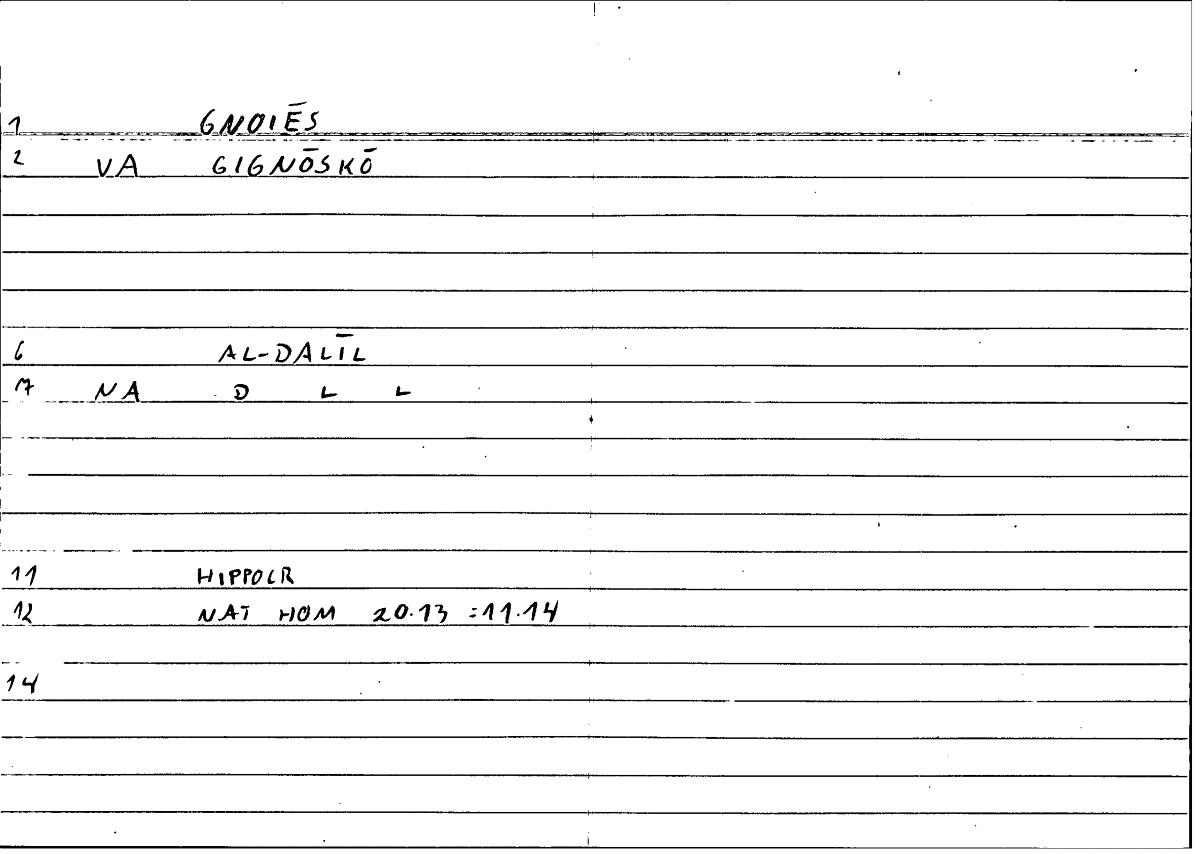 1 GNOIĒS
2 VA GIGNŌSKŌ
6 AL-DALĪL
7 NA D L L
11 HIPPOCR
12 NAT HOM 20.13 =11.14
14